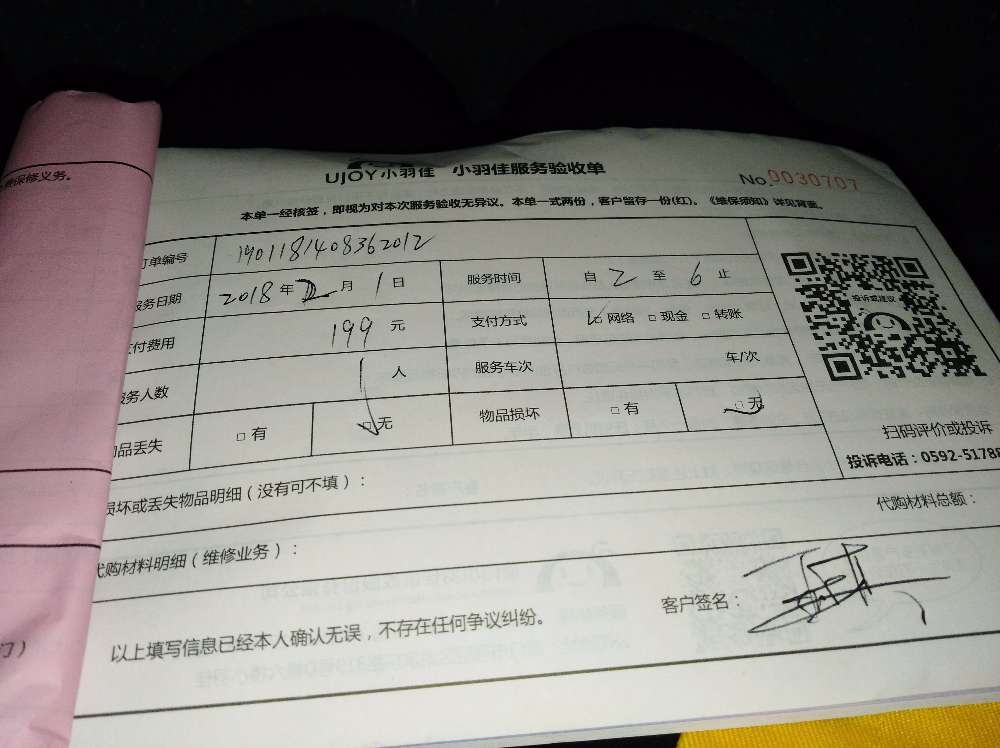 UJOY小羽佳 小羽佳服务验收单
No.0030707
本单一经核签，即视为对本次服务验收无异议。本单一式两份，客户留存一份(红)。《维保须知》详见背面。
保修义务。
订单编号 1901181408362012
服务日期 2018年2月1日 服务时间 自2至6止
支付费用 199元 支付方式 ☑网络 □现金 □转账
服务人数 1人 服务车次 车/次
物品丢失 □有 ☑无 物品损坏 □有 ☑无
投诉或建议
扫码评价或投诉
投诉电话：0592-5178
损坏或丢失物品明细（没有可不填）：
代购材料总额：
代购材料明细（维修业务）：
客户签名：
以上填写信息已经本人确认无误，不存在任何争议纠纷。